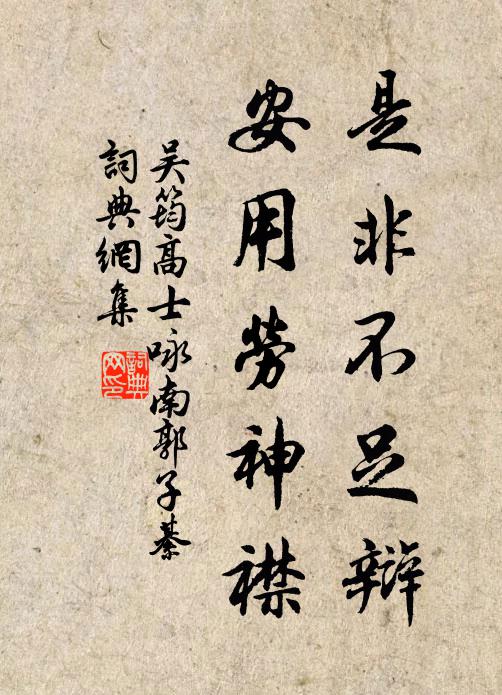 是非不足辯
安用勞神襟
吴筠高士咏南郭子綦
詞典網集
詞典
网印